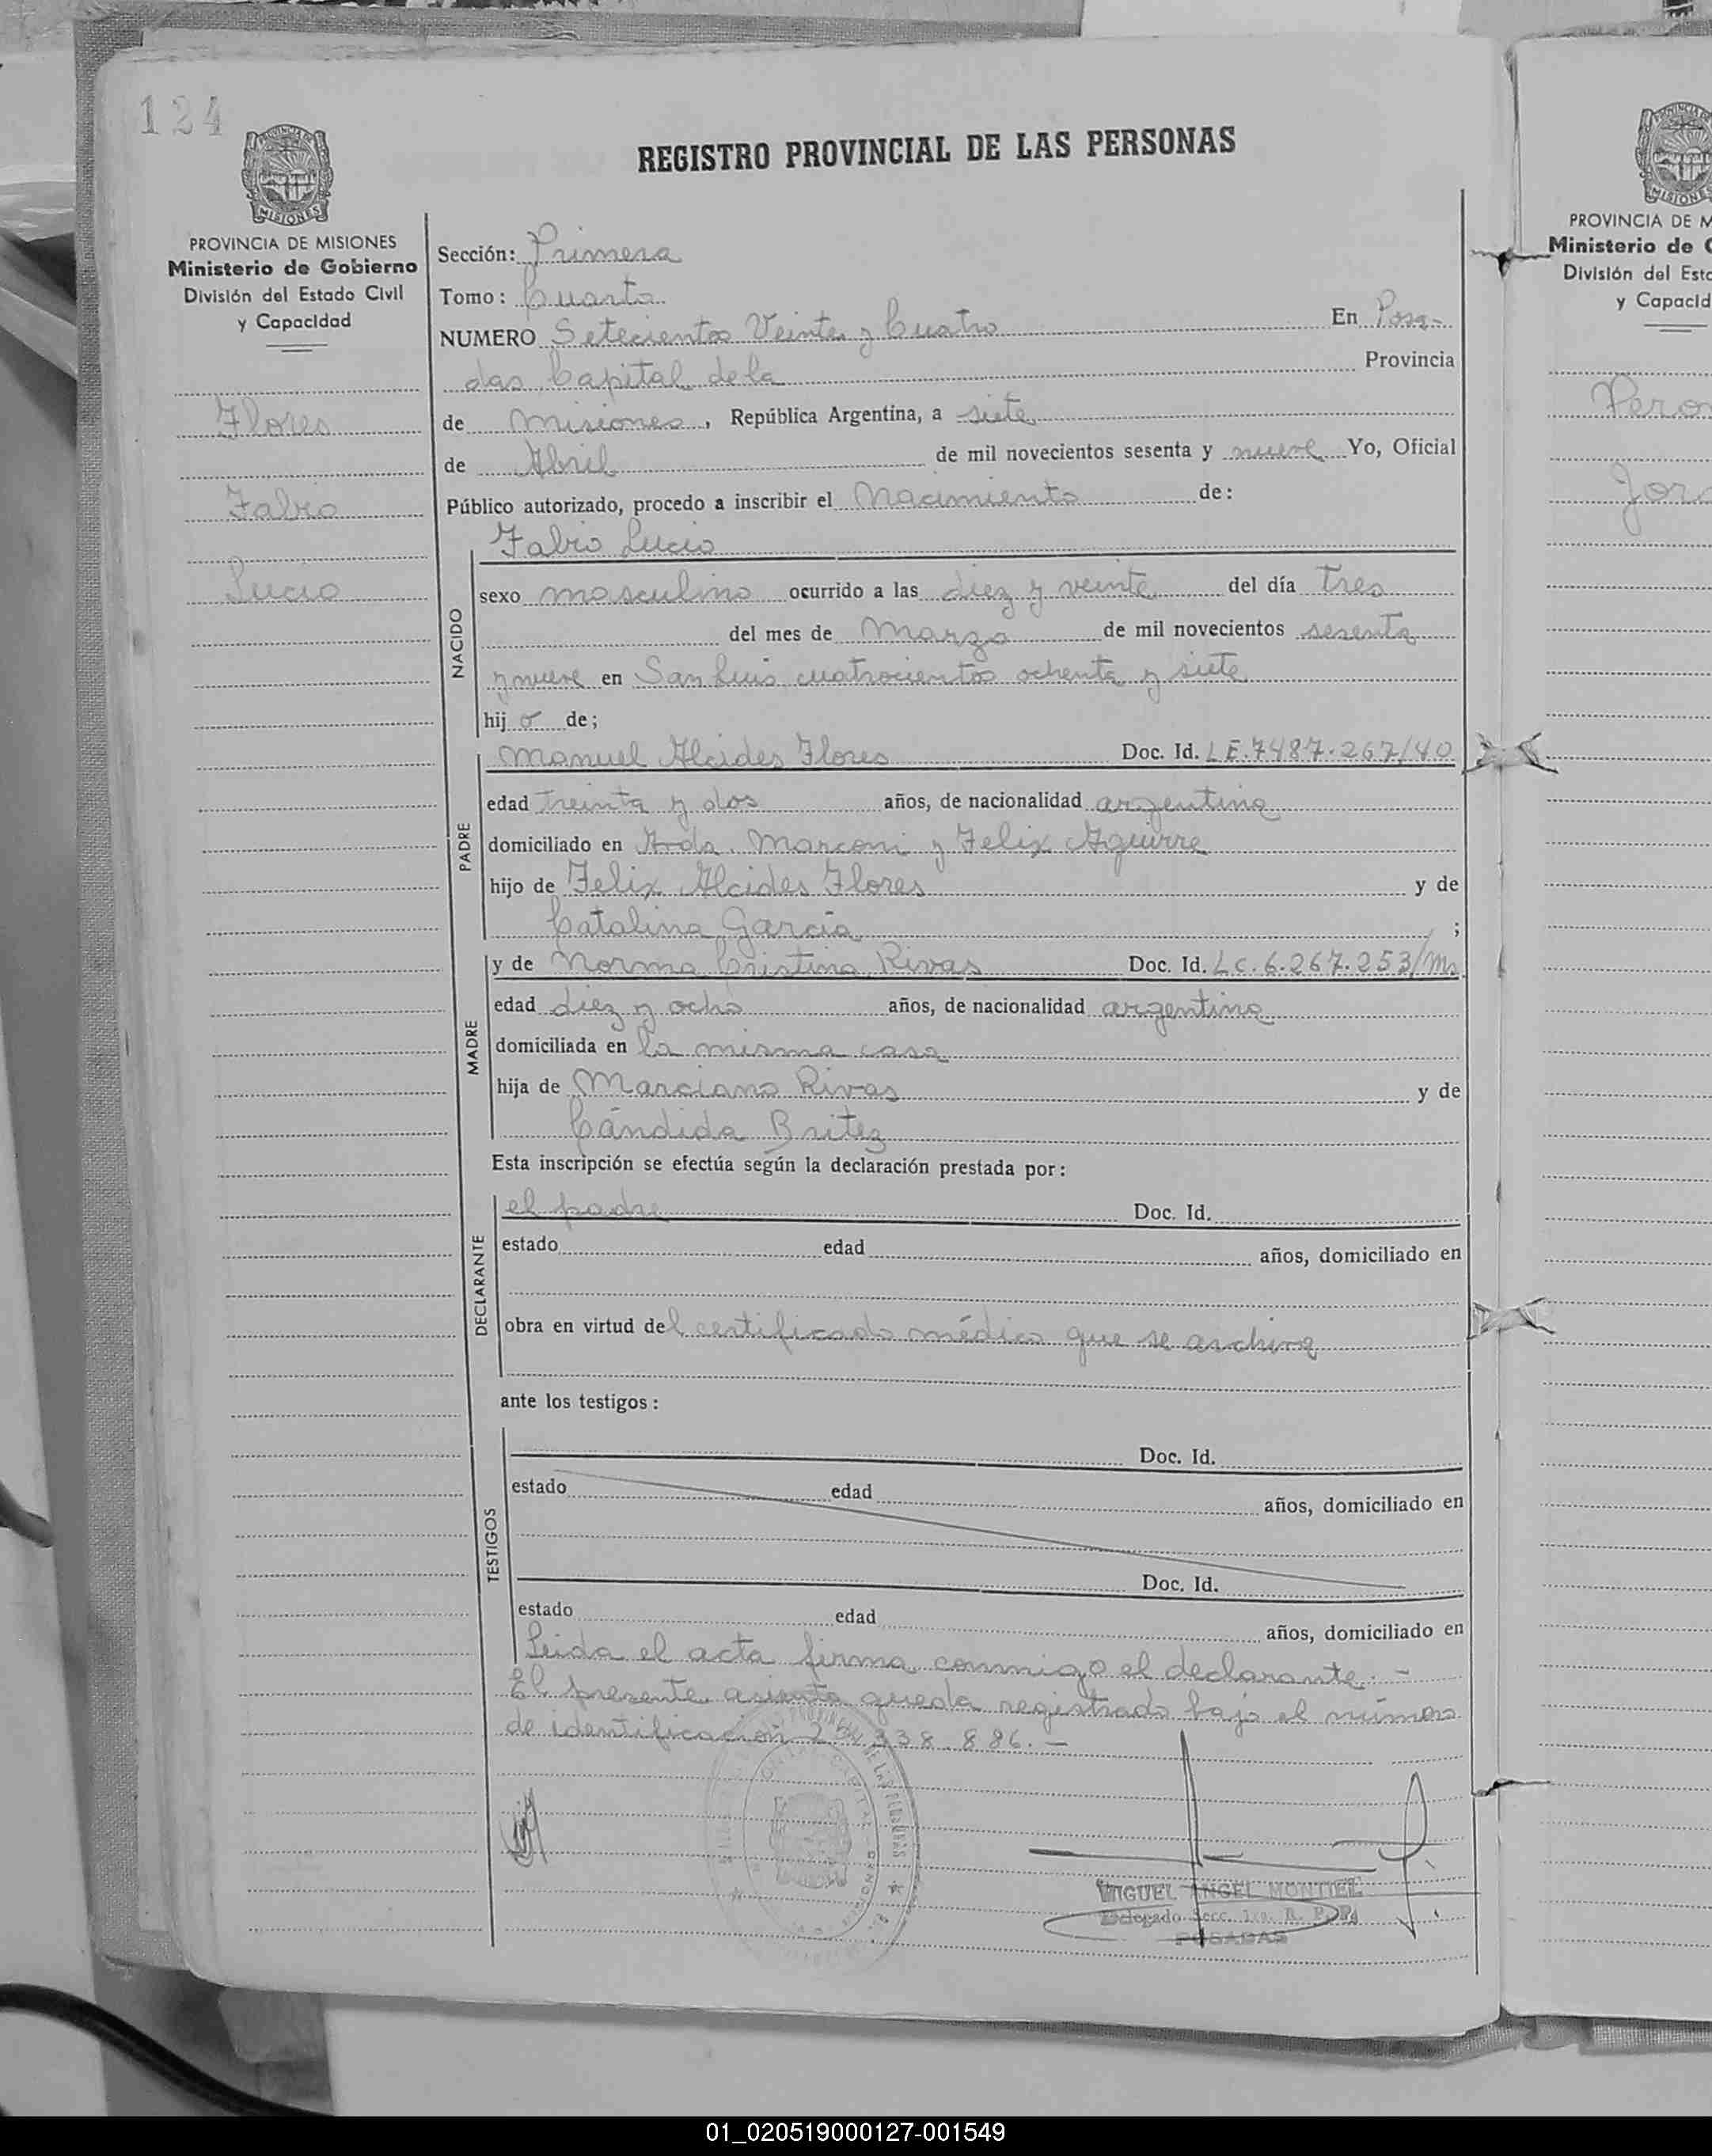 124
REGISTRO PROVINCIAL DE LAS PERSONAS
MISIONES
PROVINCIA DE MISIONES
Ministerio de Gobierno
División del Estado Civil
y Capacidad
Flores
Fabio
Lucio
Sección: Primera
Tomo: Cuarto
NUMERO Setecientos Veinte y Cuatro En Posa-
das Capital de la Provincia
de Misiones, República Argentina, a siete
de Abril de mil novecientos sesenta y nueve Yo, Oficial
Público autorizado, procedo a inscribir el Nacimiento de:
Fabio Lucio
NACIDO
sexo masculino ocurrido a las diez y veinte del día tres
del mes de Marzo de mil novecientos sesenta
y nueve en San Luis cuatrocientos ochenta y siete
hijo de;
PADRE
Manuel Alcides Flores Doc. Id. L E. 7487.267/40
edad treinta y dos años, de nacionalidad argentina
domiciliado en Avda. Marconi y Felix Aguirre
hijo de Felix Alcides Flores y de
Catalina García ;
MADRE
y de Norma Cristina Rivas Doc. Id. L C. 6.267.253/Ms
edad diez y ocho años, de nacionalidad argentina
domiciliada en la misma casa
hija de Marciano Rivas y de
Cándida Britez
Esta inscripción se efectúa según la declaración prestada por:
DECLARANTE
el padre Doc. Id.
estado edad años, domiciliado en
obra en virtud del certificado médico que se archiva
ante los testigos:
TESTIGOS
Doc. Id.
estado edad años, domiciliado en
Doc. Id.
estado edad años, domiciliado en
Leida el acta firma conmigo el declarante: -
El presente asiento queda registrado bajo el número
de identificación 338.886. -
MIGUEL ANGEL MONTIEL
Delegado Secc. 1ra. R. P. P.
POSADAS
PROVINCIA DE M
Ministerio de G
División del Esta
y Capacid
Pero
Jor
01_020519000127-001549